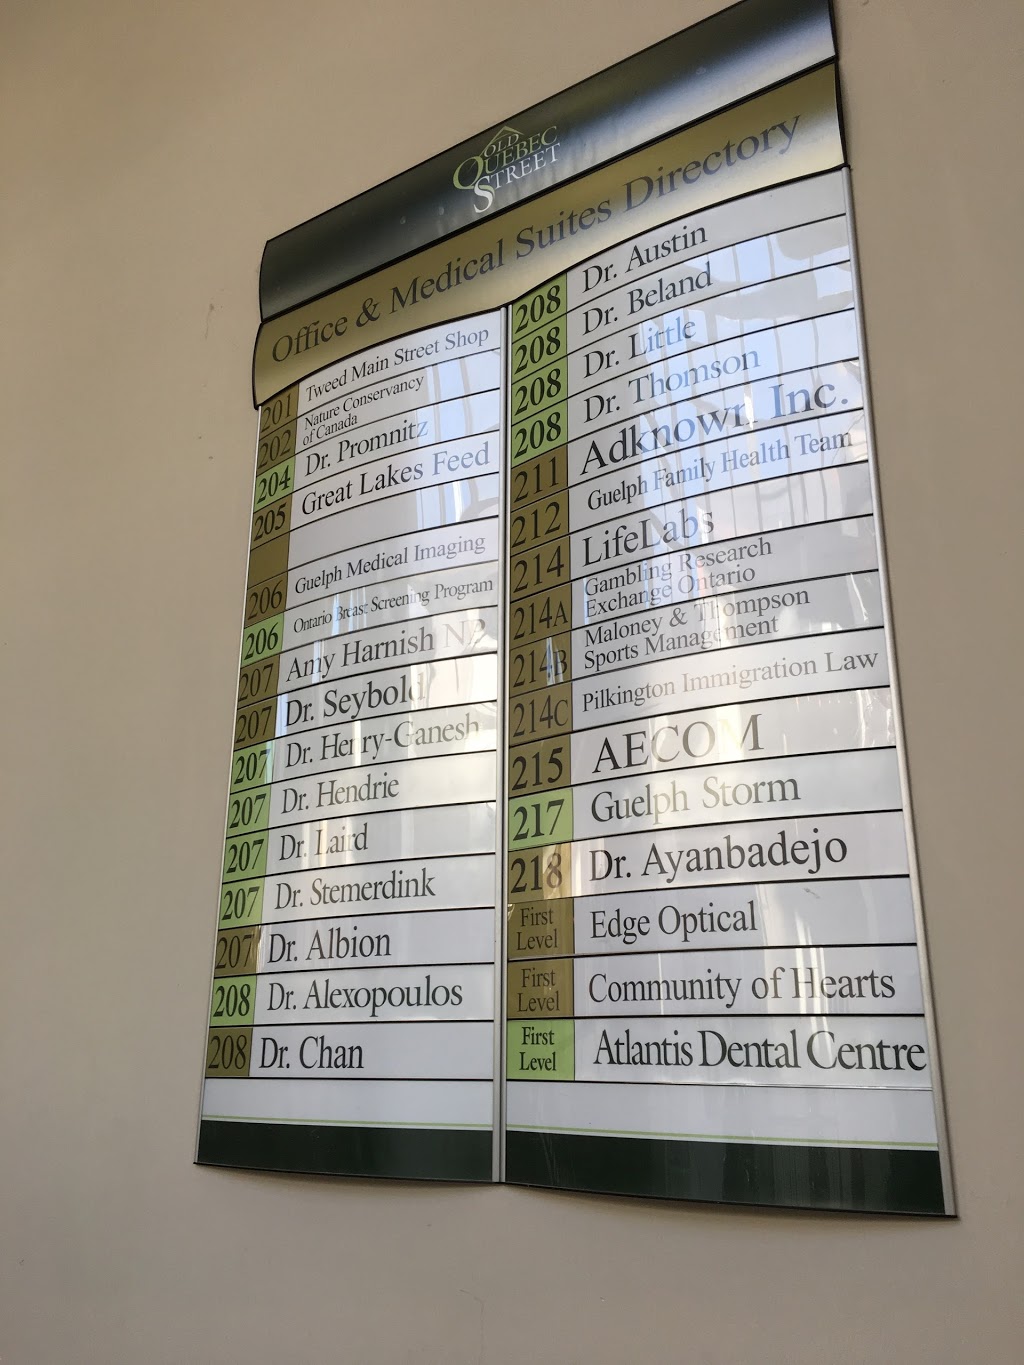 OLD
QUEBEC
STREET
Office & Medical Suites Directory
201 Tweed Main Street Shop
202 Nature Conservancy
of Canada
204 Dr. Promnitz
205 Great Lakes Feed
206 Guelph Medical Imaging
206 Ontario Breast Screening Program
207 Amy Harnish NP
207 Dr. Seybold
207 Dr. Henry-Ganesh
207 Dr. Hendrie
207 Dr. Laird
207 Dr. Stemerdink
207 Dr. Albion
208 Dr. Alexopoulos
208 Dr. Chan
208 Dr. Austin
208 Dr. Beland
208 Dr. Little
208 Dr. Thomson
211 Adknown Inc.
212 Guelph Family Health Team
214 LifeLabs
214A Gambling Research
Exchange Ontario
214B Maloney & Thompson
Sports Management
214C Pilkington Immigration Law
215 AECOM
217 Guelph Storm
218 Dr. Ayanbadejo
First
Level
Edge Optical
First
Level
Community of Hearts
First
Level
Atlantis Dental Centre